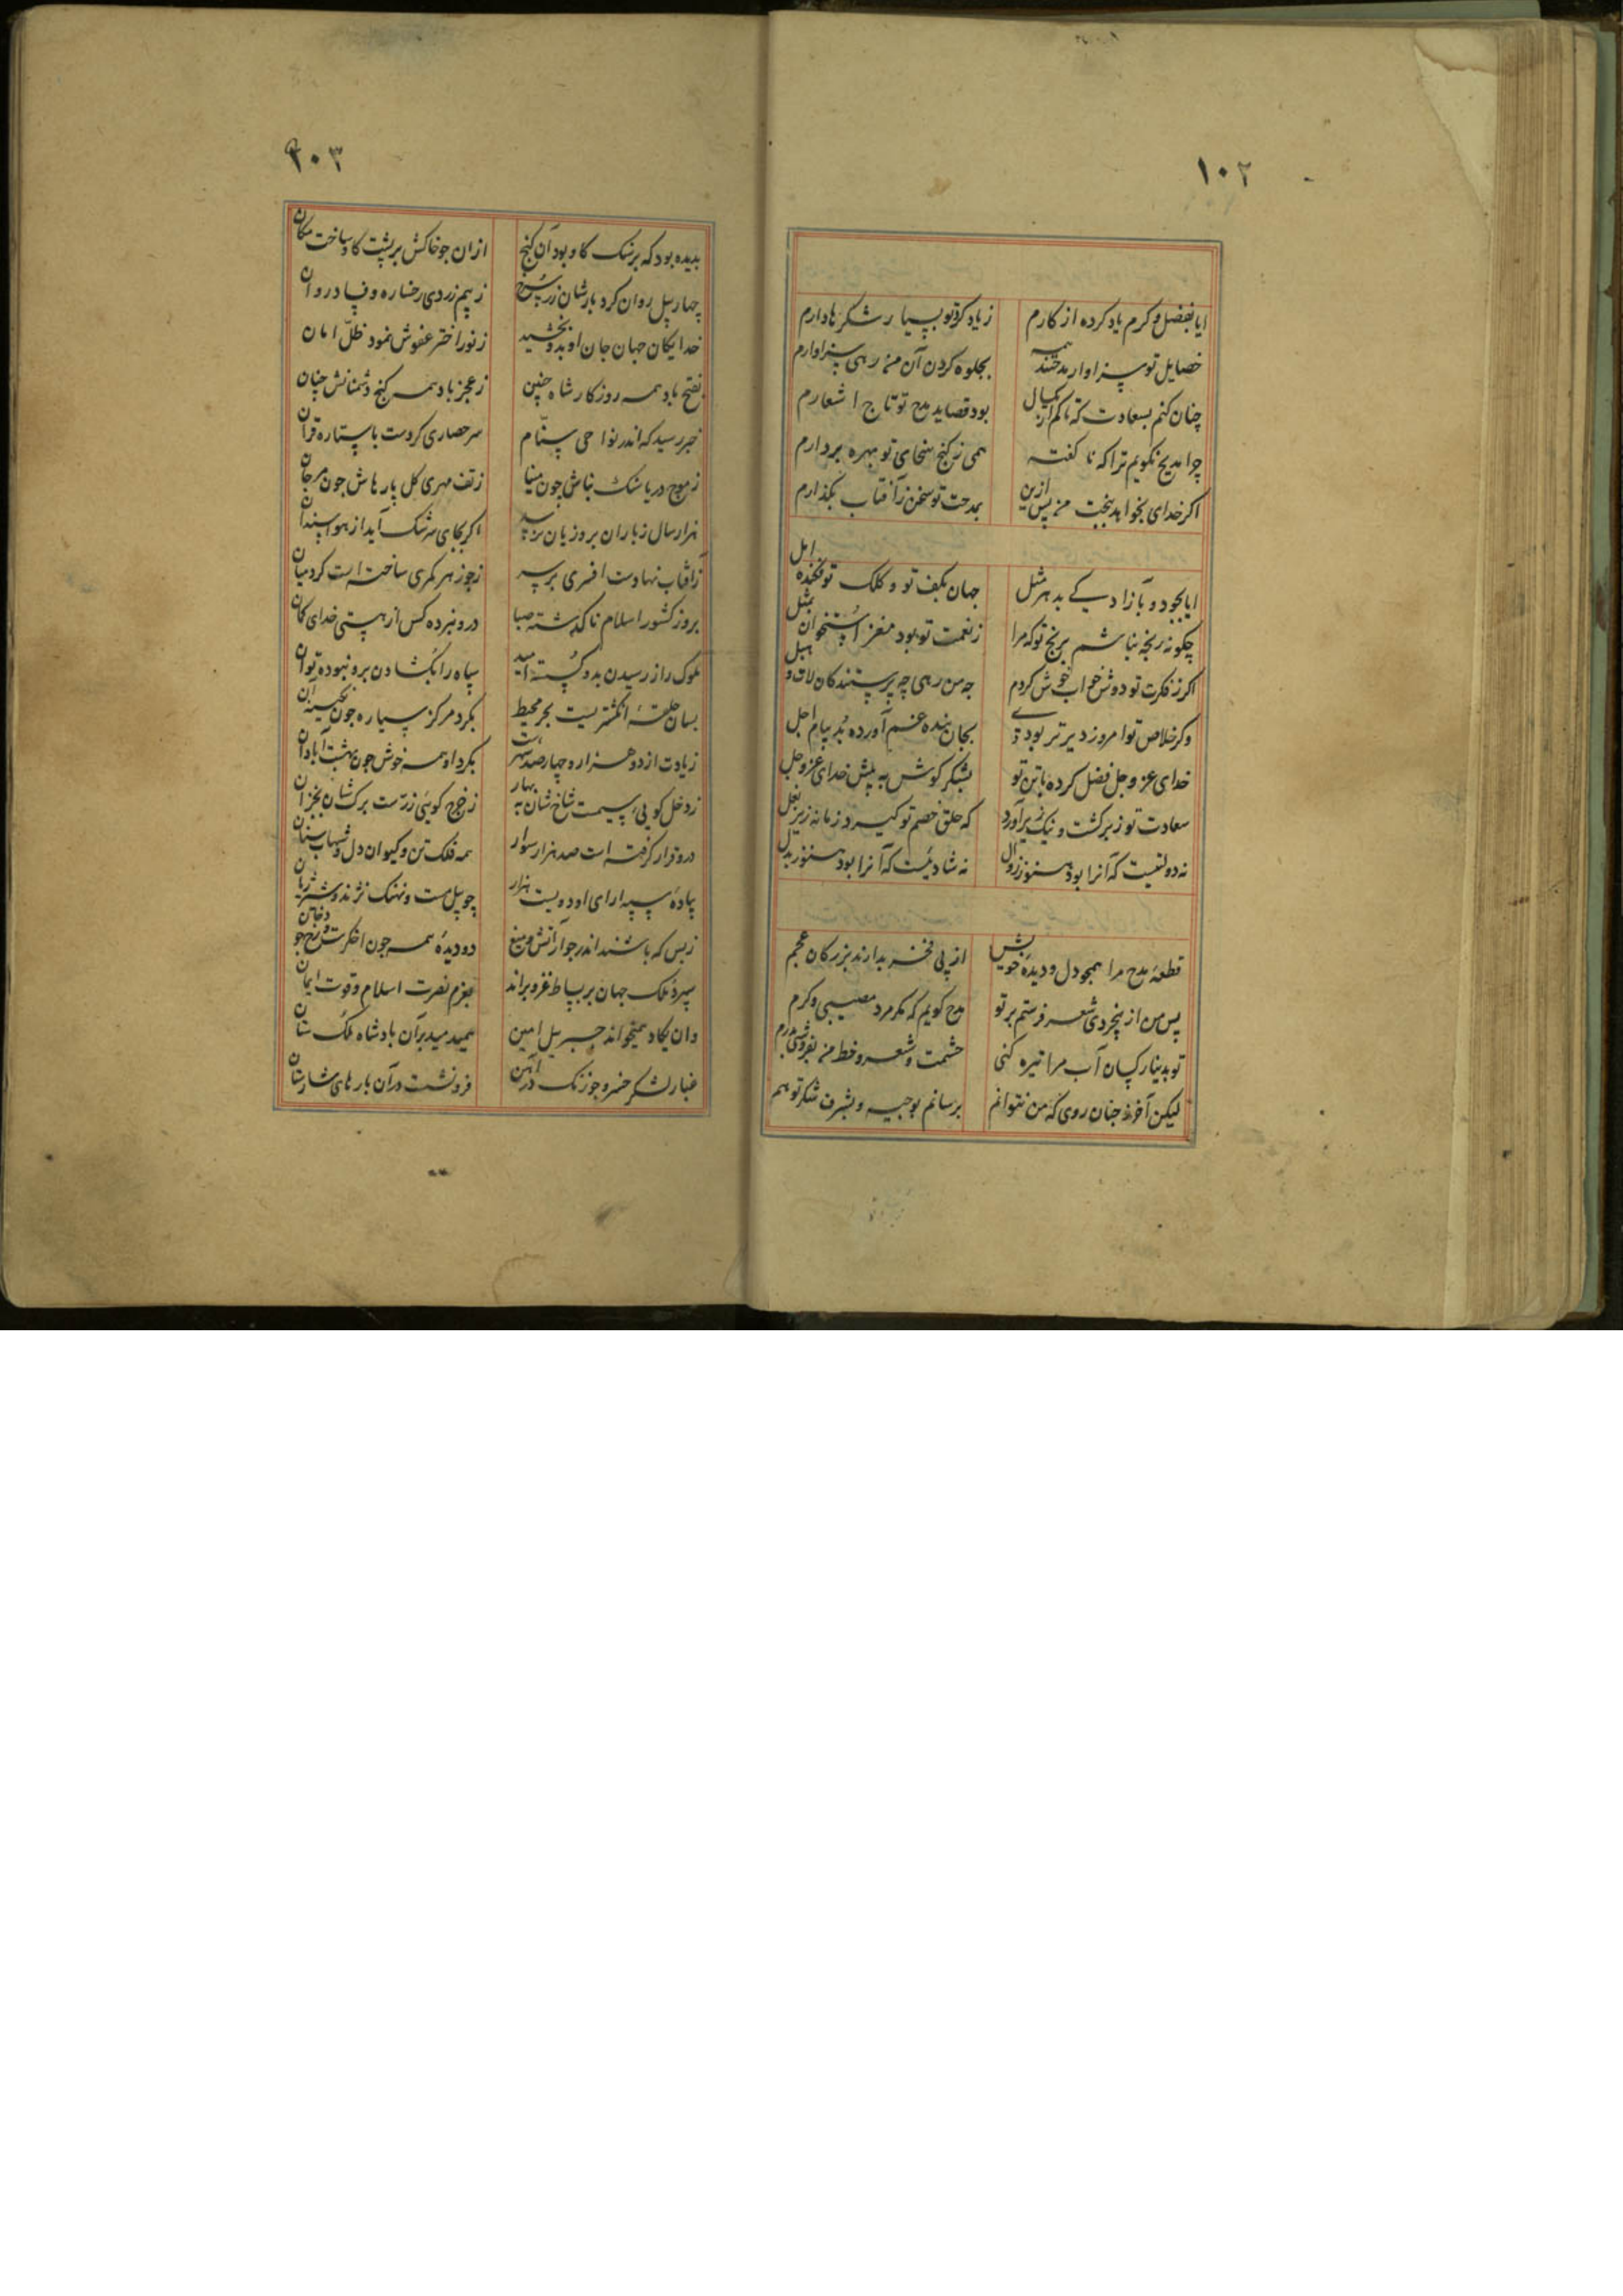 ۱۰۲
ایا بفضل و کرم یاد کرده از کارم زیاد کرد تو بسیار شکرها دارم
خصایل تو سزاوار مدحتند همه بجلوه کردن آن من رهی سزاوارم
چنان کنم بسعادت که تا کم از یکسال بود قصاید مدح تو تاج اشعارم
چرا مدیح نکویم ترا که نا کفته همی ز کنج سخای تو بهره بردارم
اکر خدای بخواهد بنجت من پس ازین بمدحت تو سخن ز آفتاب بکذارم
ایا بجود و بآزادیکی بدهر مثل جهان بکف تو و کلک تو فکنده امل
چکونه رنجه نباشم برنج تو که مرا ز نعمت تو بود مغز استخوان بمثل
اکر ز فکرت تو دوش خواب خوش کردم چه من رهی چه پرستندکان لات و هبل
وکر خلاص تو امروز دیرتر بودی بجان بنده غم آورده بد پیام اجل
خدای عز و جل فضل کرده با تن تو بشکر کوش به پیش خدای عز و جل
سعادت تو ز بر کشت و نیک زیر آورد که حلق خصم تو کیرد زمانه زیر بغل
نه دولتیست که آنرا بود هنوز زوال نه شادیست که آنرا بود هنوز بدل
قطعهٔ مدح مرا همچو دل و دیدهٔ خویش از پی فخر بدارند بزرکان عجم
پس من از بیخردی شعر فرستم بر تو مدح کویم که مکر مرد مصیبی و کرم
تو بدینار کسان آب مرا تیره کنی حشمت و شعر و خط من بفروشی بدرم
لیکن آخر نه چنان روی که من نتوانم برسانم بوجیه و بشرف شکر تو هم
۲۰۳
بدیده بود که بر سنک کاو بود آن کنج از ان چو خاکش بر پشت کاو ساخت مکان
چهار پیل روان کرد بارشان زر سرخ ز بیم زردی رخساره وفا در وان
خدایکان جهان جان او بدو بخشید ز نور اختر عفوش نمود ظلّ امان
بفتح باد همه روزکار شاه چنین ز عجز باد همه کنج دشمنانش چنان
خبر رسید که اندر نواحی ستنام سر حصاری کردست با ستاره قران
ز موج دریا سنک بناش چون مینا ز تف مهری کل پارهاش چون مرجان
هزار سال ز باران برو زیان نرسد اکر بجای سرشک آید از هوا سندان
ز آفتاب نهادست افسری بر سر ز جوزهر کمری ساخته است کرد میان
برو ز کشور اسلام نا کذشته صبا درو نبرده کس از هستی خدای کمان
ملوک را ز رسیدن بدو کسسته امید سپاه را بکشادن برو نبوده توان
بسان حلقهٔ انکشتریست بحر محیط بکرد مرکز سیاره چون نکینهٔ آن
زیادت از دو هزار و چهارصد شهرست بکرد او همه خوش چون بهشت آبادان
ز دخل کویی سیمست شاخشان به بهار ز خرج کویی زرست برک شان بخزان
درو قرار کرفته است صد هزار سوار همه فلک تن و کیوان دل و شهاب سنان
پیادهٔ سپه ارای او دویست هزار چو پیل مست و نهنک نژند و شیر ژیان
ز بس که باشند اندر جوار آتش و میغ دو دیدهٔ همه چون اخکرست و رخ چو دخان
سپردهٔ ملک جهان بر بساط غزو براند بعزم نصرت اسلام و قوت ایمان
وان یکاد همیخواند جبریل امین همیدمید بر آن بادشاه ملک ستان
غبار لشکر خسرو چو زنک در آهن فرو نشست در آن بارهای شارستان